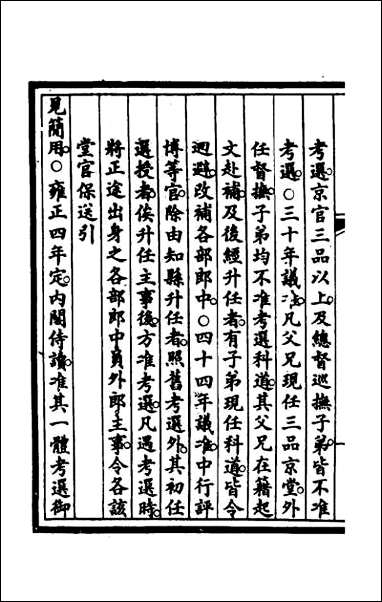 考選京官三品以上及總督巡撫子弟皆不准
考選○三十年議准凡父兄現任三品京堂外
任督撫子弟均不准考選科道其父兄在籍起
文赴補及後經升任者有子弟現任科道皆令
迴避改補各部郎中○四十四年議准中行評
博等官除由知縣升任者照舊考選外其初任
選授者俟升任主事後方准考選凡遇考選時
將正途出身之各部郎中員外郎主事令各該
堂官保送引
見簡用○雍正四年定內閣侍讀准其一體考選御